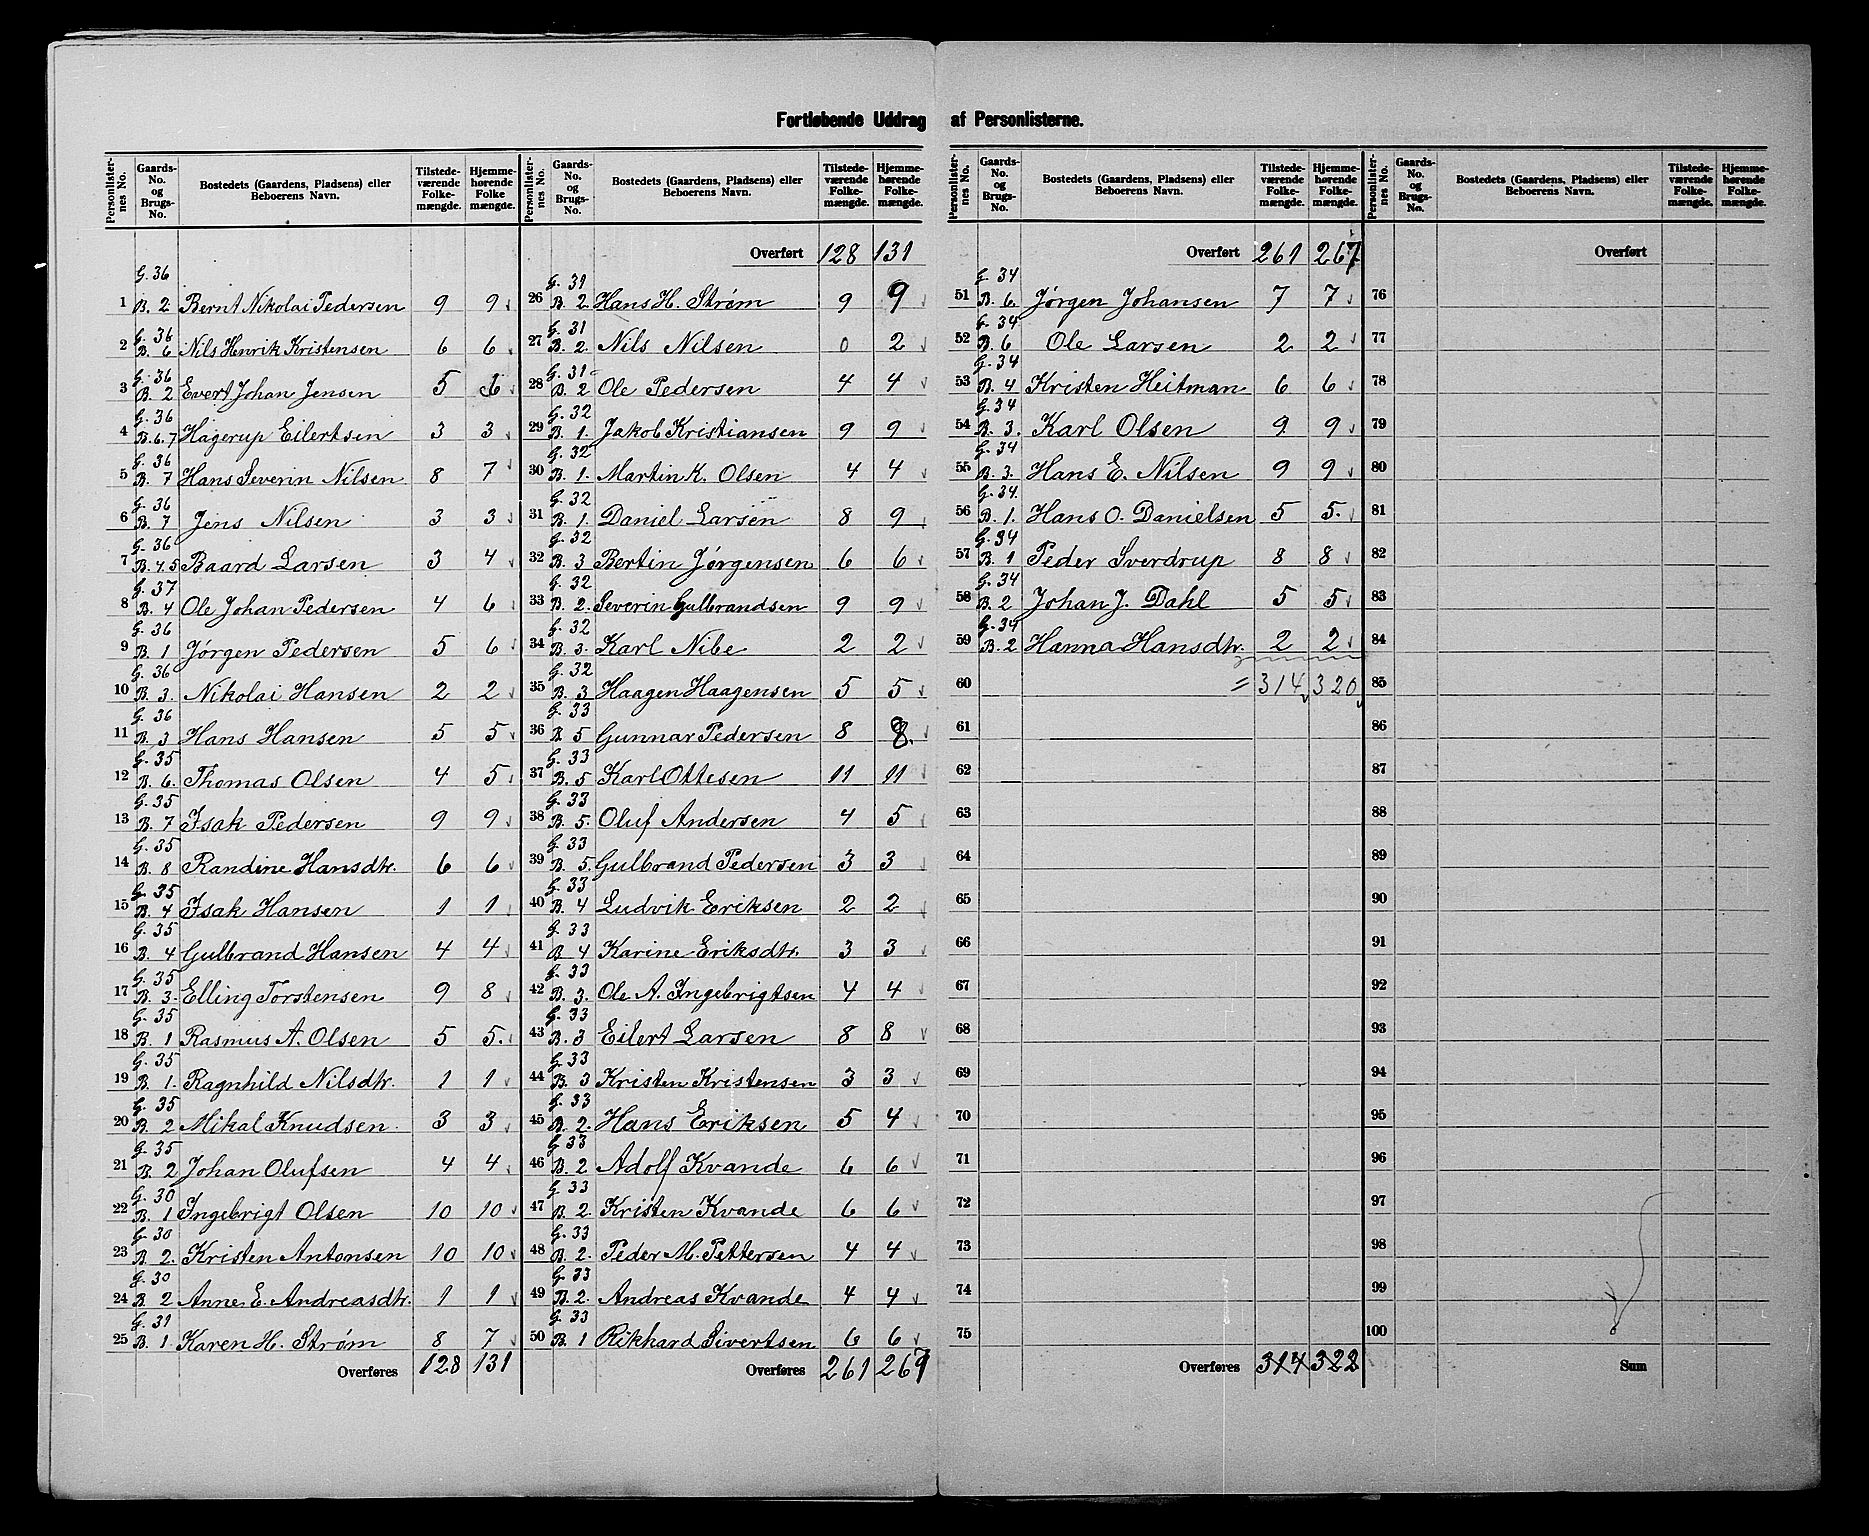 Fortløbende Uddrag af Personlisterne.
Personlister-nes No. | Gaards-No. og Brugs-No. | Bostedets (Gaardens, Pladsens) eller Beboerens Navn. | Tilstede-værende Folke-mængde. | Hjemme-hørende Folke mængde.
1 G. 36 B. 2 Bernt Nikolai Pedersen 9 9
2 G. 36 B. 6 Nils Henrik Kristensen 6 6
3 G. 36 B. 2 Evert Johan Jensen 5 6
4 G. 36 B. 6.7 Hagerup Eilertsen 3 3
5 G. 36 B. 7 Hans Severin Nilsen 8 7
6 G. 36 B. 7 Jens Nilsen 3 3
7 G. 36 B. 4.5 Baard Larsen 3 4
8 G. 37 B. 4 Ole Johan Pedersen 4 6
9 G. 36 B. 1 Jørgen Pedersen 5 6
10 G. 36 B. 3. Nikolai Hansen 2 2
11 G. 36 B. 3 Hans Hansen 5 5
12 G. 35 B. 6. Thomas Olsen 4 5
13 G. 35 B. 7 Isak Pedersen 9 9
14 G. 35 B. 8 Randine Hansdtr. 6 6
15 G. 35 B. 4 Isak Hansen 1 1
16 G. 35 B. 4 Gulbrand Hansen 4 4
17 G. 35 B. 3. Elling Torstensen 9 8
18 G. 35 B. 1 Rasmus A. Olsen 5 5.
19 G. 35 B. 1. Ragnhild Nilsdtr. 1 1
20 G. 35 B. 2 Mikal Knudsen. 3 3
21 G. 35 B. 2 Johan Olufsen 4 4
22 G. 30 B. 1 Ingebrigt Olsen 10 10
23 G. 30 B. 2. Kristen Antonsen 10 10
24 G. 30 B. 2 Anne E. Andreasdtr. 1 1
25 G. 31 B. 1. Karen H. Strøm 8 7
Overføres 128 131
Personlister-nes No. | Gaards-No. og Brugs-No. | Bostedets (Gaardens, Pladsens) eller Beboerens Navn. | Tilstede-værende Folke-mængde. | Hjemme-hørende Folke-mængde.
Overført 128 131
26 G. 31 B. 2 Hans H. Strøm 9 9
27 G. 31 B. 2. Nils Nilsen 0 2
28 G. 31 B. 2 Ole Pedersen 4 4
29 G. 32 B. 1. Jakob Kristiansen 9 9
30 G. 32 B. 1. Martin K. Olsen 4 4
31 G. 32 B. 1. Daniel Larsen 8 9
32 G. 32 B. 3 Bertin Jørgensen 6 6
33 G. 32 B. 2. Severin Gulbrandsen 9 9
34 G. 32 B. 3. Karl Nibe 2 2
35 G. 32 B. 3 Haagen Haagensen 5 5
36 G. 33 B. 5 Gunnar Pedersen 8 8.
37 G. 33 B. 5 Karl Ottesen 11 11
38 G. 33 B. 5. Oluf Andersen 4 5
39 G. 33 B. 5. Gulbrand Pedersen 3 3
40 G. 33 B. 4 Ludvik Eriksen 2 2
41 G. 33 B. 4 Karine Eriksdtr. 3 3
42 G. 33 B. 3. Ole A. Ingebrigtsen 4 4
43 G. 33 B. 3 Eilert Larsen 8 8
44 G. 33 B. 3 Kristen Kristensen 3 3
45 G. 33 B. 2. Hans Eriksen 5 4
46 G. 33 B. 2 Adolf Kvande 6 6
47 G. 33 B. 2. Kristen Kvande 6 6
48 G. 33 B. 2. Peder M. Pettersen 4 4
49 G. 33 B. 2. Andreas Kvande 4 4
50 G. 33 B. 1 Rikhard Sivertsen 6 6
Overføres 261 267
Personlister-nes No. | Gaards-No. og Brugs-No. | Bostedets (Gaardens, Pladsens) eller Beboerens Navn. | Tilstede-værende Folke-mængde. | Hjemme-hørende Folke-mængde.
Overført 261 267
51 G. 34 B. 6. Jørgen Johansen 7 7
52 G. 34 B. 6 Ole Larsen 2 2
53 G. 34 B. 4 Kristen Heitman 6 6
54 G. 34 B. 3. Karl Olsen 9 9
55 G. 34 B. 3. Hans E. Nilsen 9 9
56 G. 34. B. 1. Hans O. Danielsen 5 5.
57 G. 34 B. 1 Peder Sverdrup 8 8
58 G. 34 B. 2 Johan J. Dahl 5 5
59 G. 34 B. 2 Hanna Hansdtr. 2 2
60 = 314 320
61
62
63
64
65
66
67
68
69
70
71
72
73
74
75
Overføres 314 328
Personlister-nes No. | Gaards-No. og Brugs-No. | Bostedets (Gaardens, Pladsens) eller Beboerens Navn. | Tilstede-værende Folke-mængde. | Hjemme-hørende Folke-mængde.
Overført
76
77
78
79
80
81
82
83
84
85
86
87
88
89
90
91
92
93
94
95
96
97
98
99
100
Sum